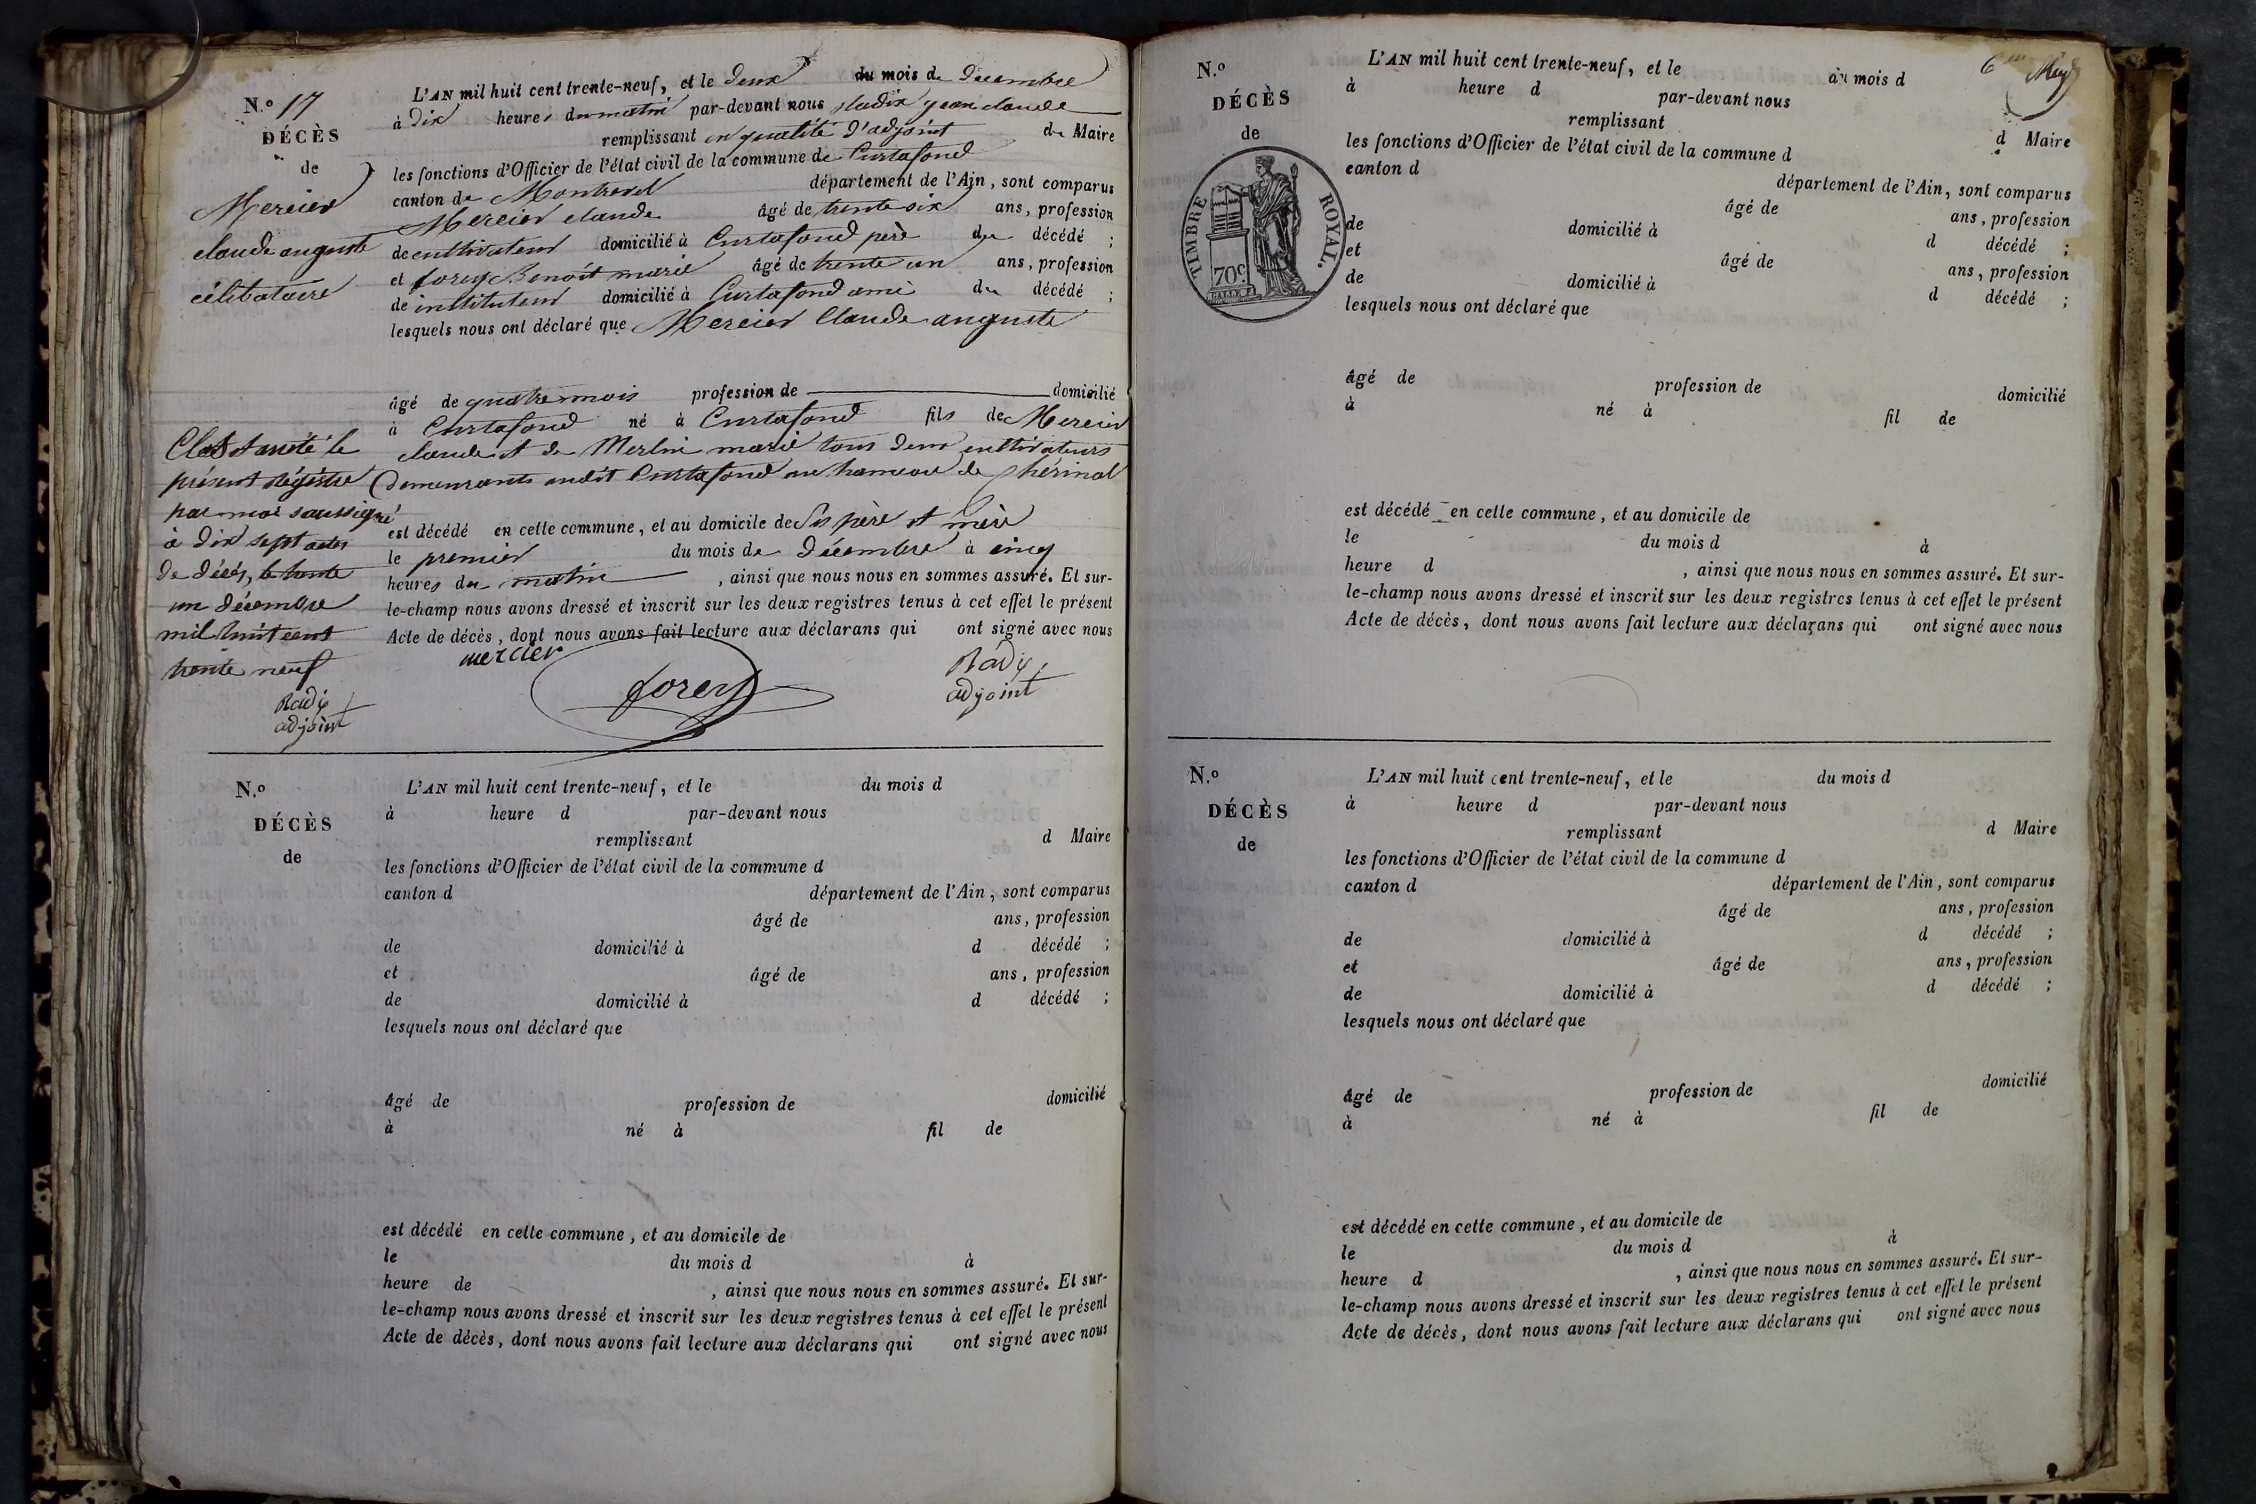 N.º 17
DÉCÈS
de
Mercier
claude auguste
célibataire
L'AN mil huit cent trente-neuf, et le deux du mois de Decembre
à dix heures du matin par-devant nous Radix jean claude
remplissant en qualité d'adjoint du Maire
les fonctions d'Officier de l'état civil de la commune de Curtafond
canton de Montrevel département de l'Ain, sont comparus
Mercier claude âgé de trente six ans, profession
de cultivateur domicilié à Curtafond père du décédé ;
et forey Benoit marie âgé de trente un ans, profession
de instituteur domicilié à Curtafond ami du décédé ;
lesquels nous ont déclaré que Mercier Claude auguste
âgé de quatre mois profession de domicilié
à Curtafond né à Curtafond fils de Mercier
claude et de Merlin marie tous deux cultivateurs
demeurants audit Curtafond au hameau de
est décédé en cette commune, et au domicile de Ses père et mère
le premier du mois de Décembre à cinq
heures du matin , ainsi que nous nous en sommes assuré. Et sur-
le-champ nous avons dressé et inscrit sur les deux registres tenus à cet effet le présent
Acte de décès, dont nous avons fait lecture aux déclarans qui ont signé avec nous
mercier
forey
Radix
adjoint
Clos et arrêté le
présent régistre
par moi soussigné
à dix sept actes
de décès, le trente
un décembre
mil huit cent
trente neuf
Radix
adjoint
N.º
DÉCÈS
de
L'AN mil huit cent trente-neuf, et le du mois d
à heure d par-devant nous
remplissant d Maire
les fonctions d'Officier de l'état civil de la commune d
canton d département de l'Ain, sont comparus
âgé de ans, profession
de domicilié à d décédé ;
et âgé de ans, profession
de domicilié à d décédé ;
lesquels nous ont déclaré que
âgé de profession de domicilié
à né à fil de
est décédé en cette commune, et au domicile de
le du mois d à
heure de , ainsi que nous nous en sommes assuré. Et sur-
le-champ nous avons dressé et inscrit sur les deux registres tenus à cet effet le présent
Acte de décès, dont nous avons fait lecture aux déclarans qui ont signé avec nous
N.º
DÉCÈS
de
TIMBRE ROYAL.
70c
L'AN mil huit cent trente-neuf, et le du mois d
à heure d par-devant nous
remplissant d Maire
les fonctions d'Officier de l'état civil de la commune d
canton d département de l'Ain, sont comparus
âgé de ans, profession
de domicilié à d décédé ;
et âgé de ans, profession
de domicilié à d décédé ;
lesquels nous ont déclaré que
âgé de profession de domicilié
à né à fil de
est décédé en cette commune, et au domicile de
le du mois d à
heure d , ainsi que nous nous en sommes assuré. Et sur-
le-champ nous avons dressé et inscrit sur les deux registres tenus à cet effet le présent
Acte de décès, dont nous avons fait lecture aux déclarans qui ont signé avec nous
N.º
DÉCÈS
de
L'AN mil huit cent trente-neuf, et le du mois d
à heure d par-devant nous
remplissant d Maire
les fonctions d'Officier de l'état civil de la commune d
canton d département de l'Ain, sont comparus
âgé de ans, profession
de domicilié à d décédé ;
et âgé de ans, profession
de domicilié à d décédé ;
lesquels nous ont déclaré que
âgé de profession de domicilié
à né à fil de
est décédé en cette commune, et au domicile de
le du mois d à
heure d , ainsi que nous nous en sommes assuré. Et sur-
le-champ nous avons dressé et inscrit sur les deux registres tenus à cet effet le présent
Acte de décès, dont nous avons fait lecture aux déclarans qui ont signé avec nous